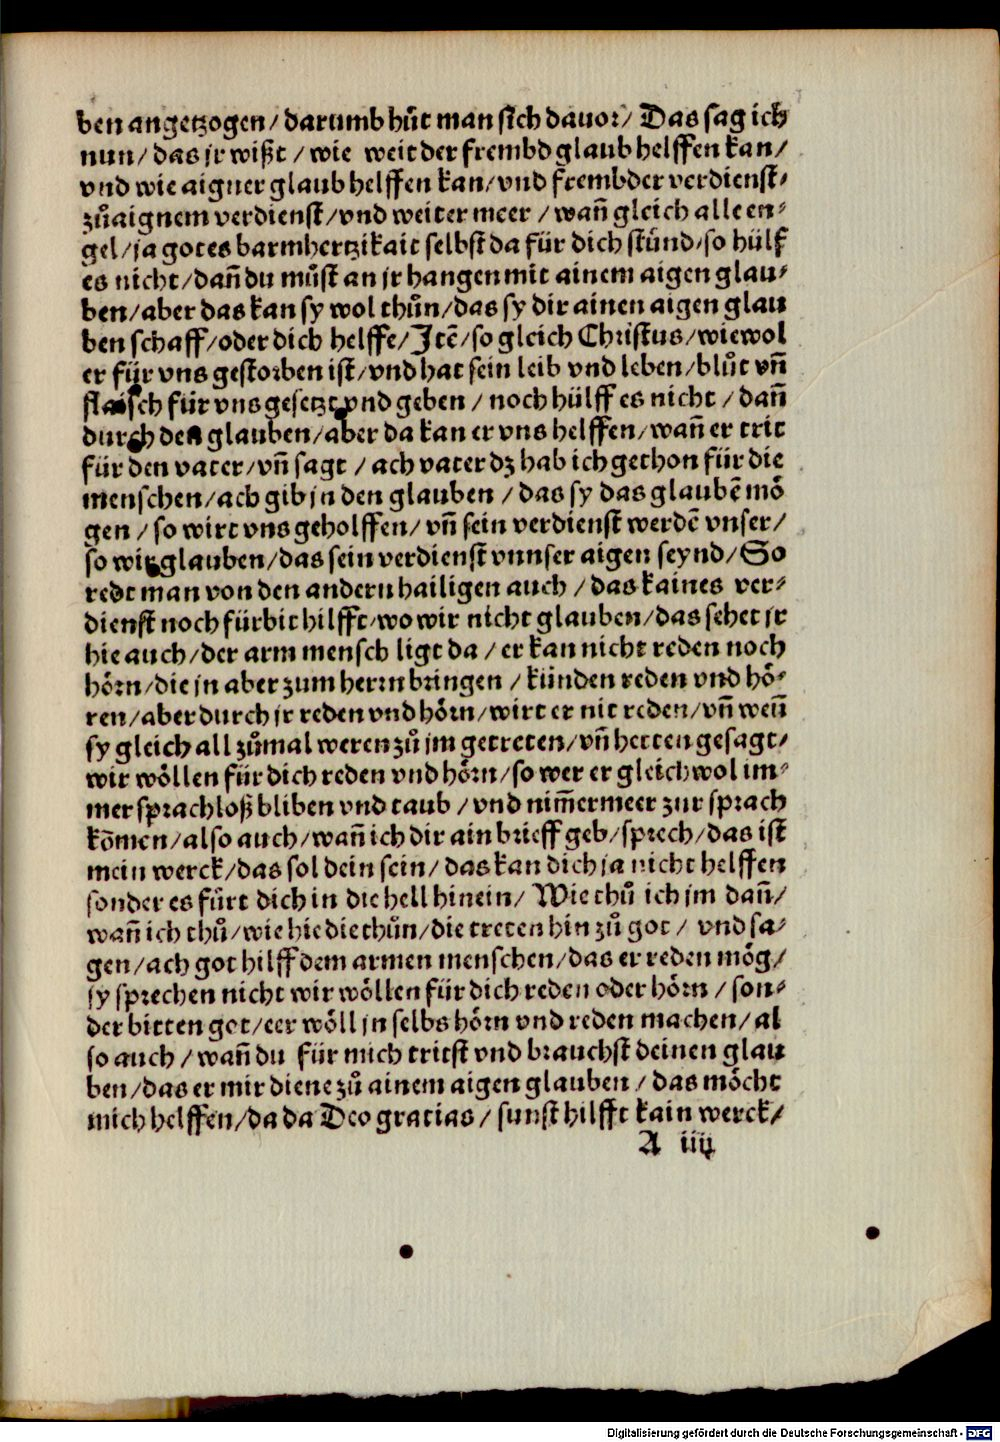 ben angetzogen/ darumb hůt man sich dauor/ Das sag ich
nun/ das jr wißt / wie weit der frembd glaub helffen kan/
vnd wie aigner glaub helffen kan/vnd frembder verdienst/
zůaignem verdienst/vnd weiter meer / wañ gleich alle en⸗
gel/ja gotes barmhertzikait selbst da für dich stünd/so hülf
es nicht/dañ du můst an jr hangen mit ainem aigen glau⸗
ben/aber das kan sy wol thůn/das sy dir ainen aigen glau
ben schaff/oder dich helffe/Jtē/so gleich Christus/wiewol
er für vns gestorben ist/vnd hat sein leib vnd leben/blůt vñ
flaisch für vns gesetzt vnd geben / noch hülff es nicht / dañ
durch den glauben/aber da kan er vns helffen/wañ er trit
für den vater/vñ sagt / ach vater dz hab ich gethon für die
menschen/ach gib jn den glauben / das sy das glaubē mö
gen / so wirt vns geholffen/ vñ sein verdienst werdē vnser/
so wir glauben/das sein verdienst vnnser aigen seynd/ So
redt man von den andern hailigen auch / das kaines ver⸗
dienst noch fürbit hilfft/wo wir nicht glauben/das sehet jr
hie auch/der arm mensch ligt da / er kan nicht reden noch
hörn/die jn aber zum herrn bringen / künden reden vnd hö⸗
ren/aber durch jr reden vnd hörn/wirt er nit reden/vñ weñ
sy gleich all zůmal weren zů jm getreten/vñ hetten gesagt/
wir wöllen für dich reden vnd hörn/so wer er gleichwol im⸗
mer sprachloß bliben vnd taub / vnd nim̄ermeer zur sprach
kōmen/also auch/wañ ich dir ain brieff geb/sprech/das ist
mein werck/das sol dein sein/ das kan dich ja nicht helffen
sonder es fůrt dich in die hell hinein/ Wie thů ich jm dañ/
wañ ich thů/wie hie die thůn/die treten hin zů got / vnd sa⸗
gen/ach got hilff dem armen menschen/das er reden mög/
sy sprechen nicht wir wöllen für dich reden oder hörn / son⸗
der bitten got/eer wöll jn selbs hörn vnd reden machen/ al
so auch / wañ du für mich tritst vnd brauchst deinen glau
ben/das er mir diene zů ainem aigen glauben / das möcht
mich helffen/da da Deo gratias / sunst hilfft kain werck/
A iiij
Digitalisierung gefördert durch die Deutsche Forschungsgemeinschaft - DFG